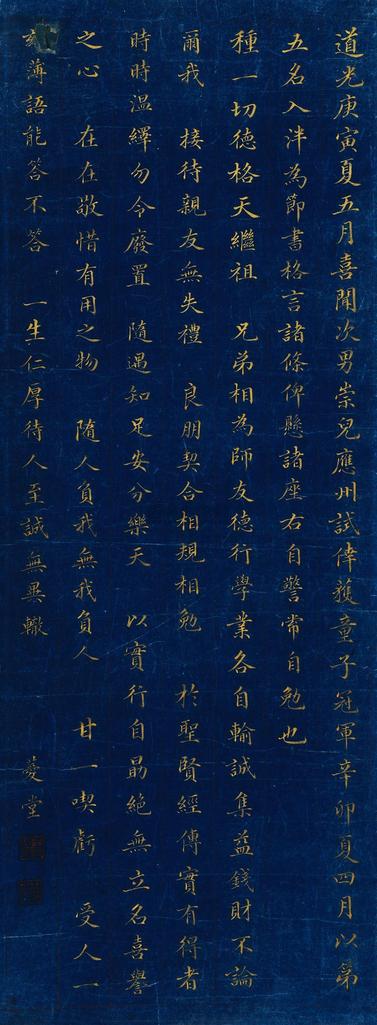 道光庚寅夏五月喜聞次男崇兒應州試倖獲童子冠軍辛卯夏四月以第
五名入泮為節書格言諸條俾懸諸座右自警常自勉也
種一切德格天繼祖 兄弟相為師友德行學業各自輸誠集益錢財不論
爾我 接待親友無失禮 良朋契合相規相勉 於聖賢經傳實有得者
時時溫繹勿令廢置 隨遇知足安分樂天 以實行自勗絕無立名喜譽
之心 在在敬惜有用之物 隨人負我無我負人 甘一喫虧 受人一
薄語能答不答 一生仁厚待人至誠無異轍
菱堂